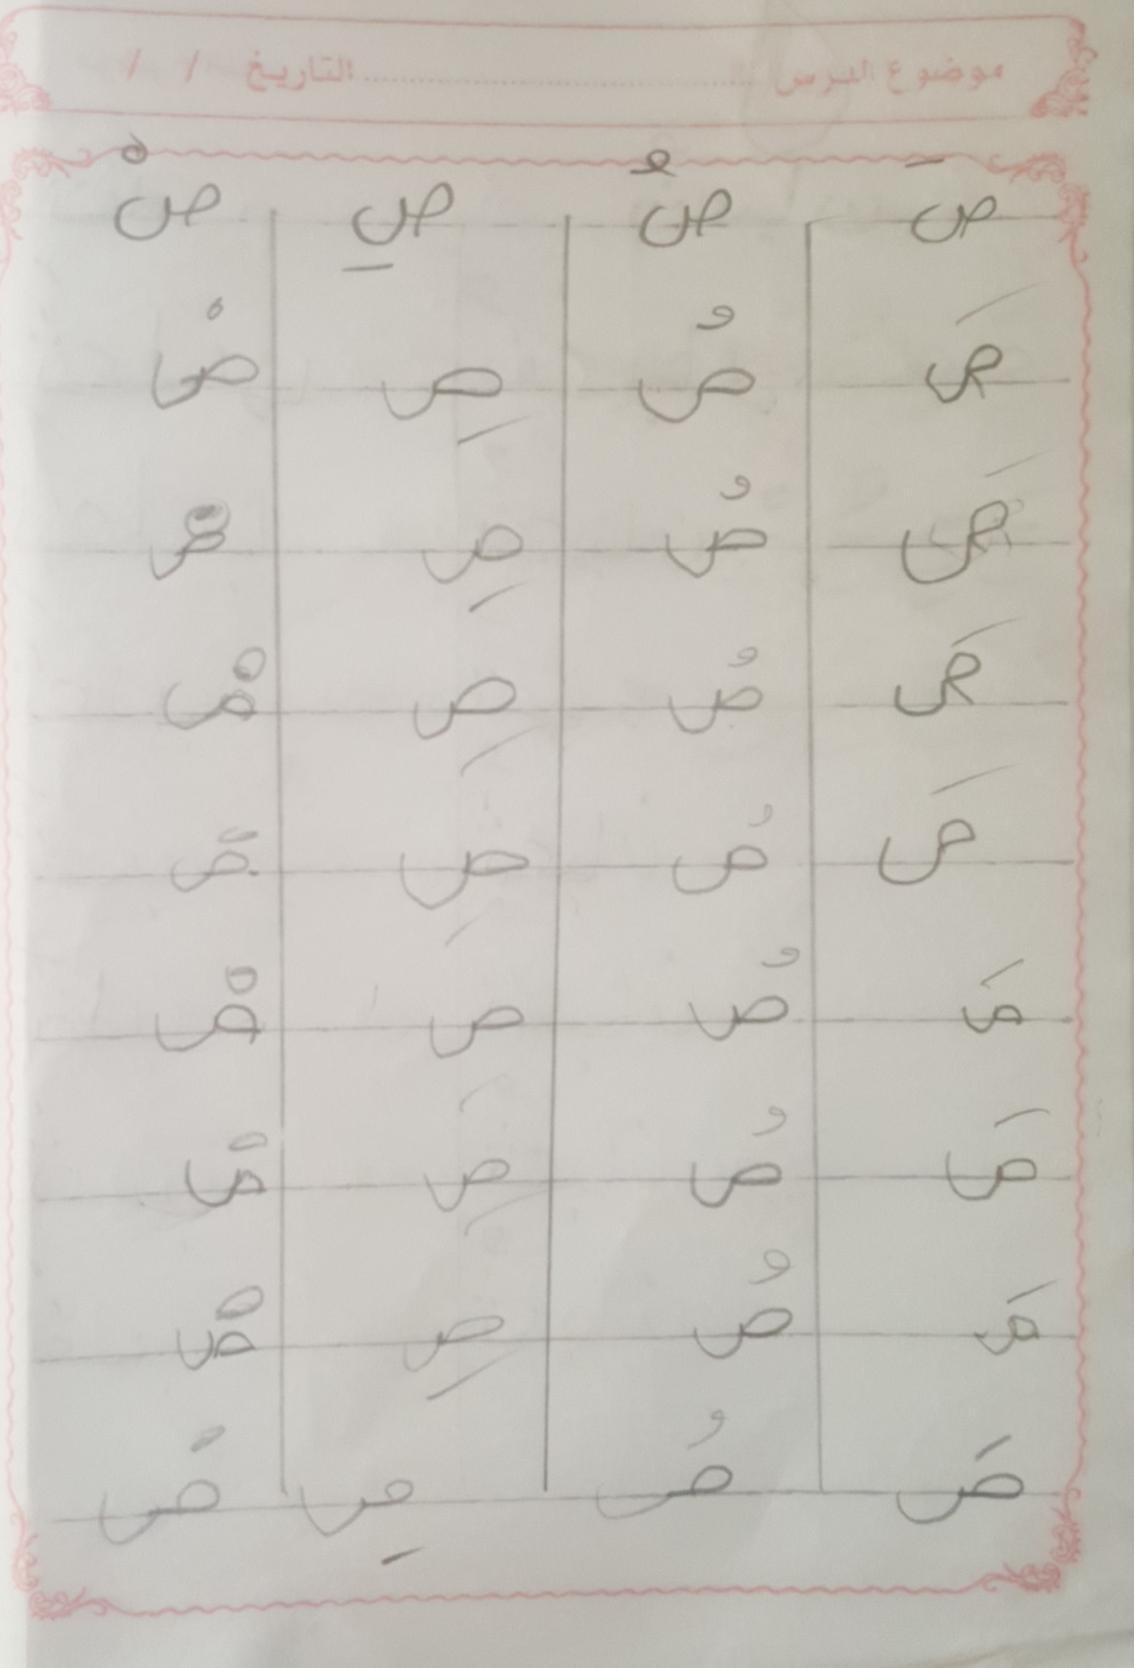 موضوع الدرس ........................ التاريخ / /
صَ صُ صِ صْ
صَ صُ صِ صْ
صَ صُ صِ صْ
صَ صُ صِ صْ
صَ صُ صِ صْ
صَ صُ صِ صْ
صَ صُ صِ صْ
صَ صُ صِ صْ
صَ صُ صِ صْ